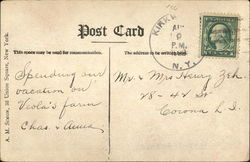 Post Card
This space may be used for communication.
The address to be written here.
A. M. Simon, 32 Union Square, New York.
KIRK
P.M.
N.Y.
Spending our
vacation on
Viola's farm
Chas. & Anna
Mr. & Mrs Henry Zeh
48-42 St
Corona L I